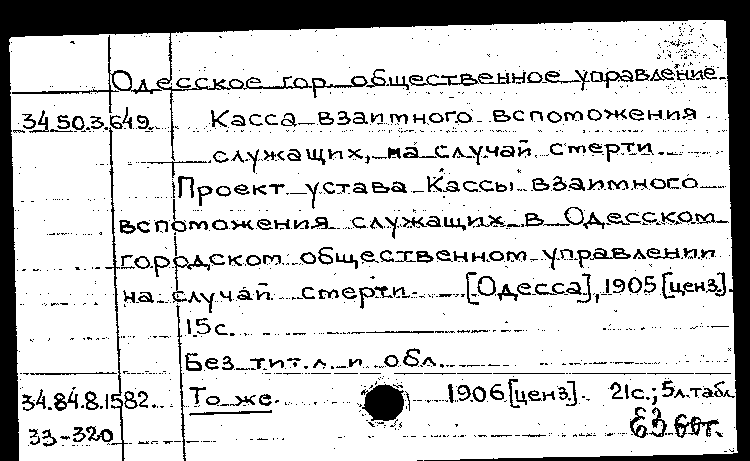 Одесское гор. общественное управление.
34.50.3.649. Касса взаимного вспоможения
служащих, на случай смерти.
Проект устава Кассы взаимного
вспоможения служащих в Одесском
городском общественном управлении
на случай смерти. [Одесса], 1905 [ценз].
15 с.
Без тит. л. и обл.
34.84.8.1582. То же. 1906 [ценз]. 21 с.; 5 л. табл
33-320